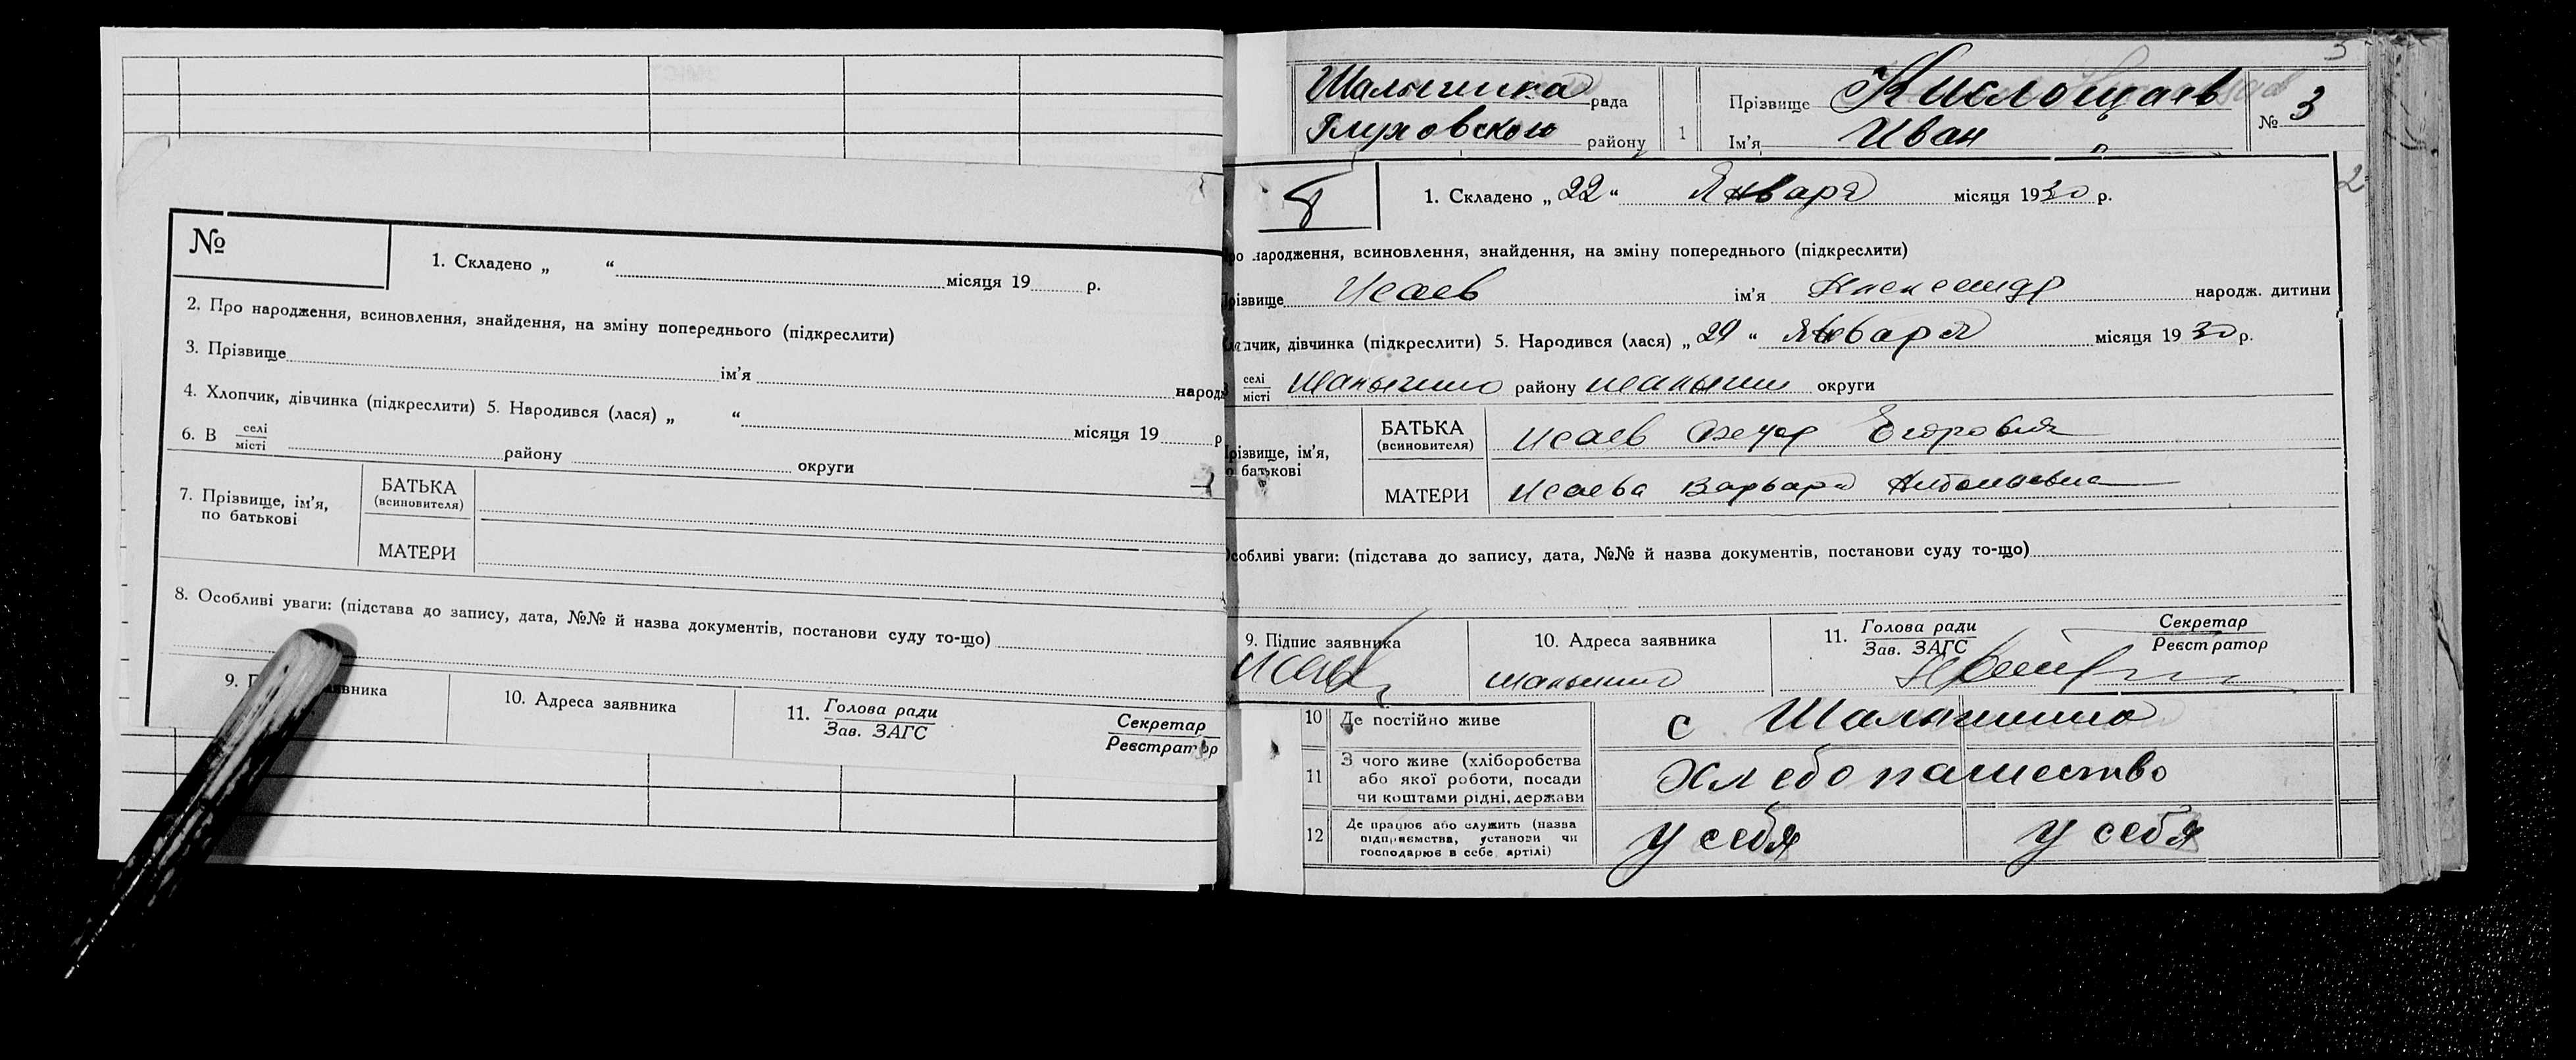 №
1. Складено „ “ місяця 19 р.
2. Про народження, всиновлення, знайдення, на зміну попереднього (підкреслити)
3. Прізвище ім'я народж
4. Хлопчик, дівчинка (підкреслити) 5. Народився (лася) „ “ місяця 19 р
6. В селі місті району округи
7. Прізвище, ім'я, по батькові
БАТЬКА (всиновителя)
МАТЕРИ
8. Особливі уваги: (підстава до запису, дата, №№ й назва документів, постанови суду то-що)
9. П аявника
10. Адреса заявника
11. Голова ради Зав. ЗАГС
Секретар Реєстратор
3
Шалыгинка рада
Глуховского району
1
Прізвище Кислощаев
Ім'я Иван
№ 3
2
8
1. Складено „22“ Января місяця 1930 р.
ро народження, всиновлення, знайдення, на зміну попереднього (підкреслити)
різвище Исаев ім'я Александр народж. дитини
пчик, дівчинка (підкреслити) 5. Народився (лася) „29“ Января місяця 1930 р.
селі місті Шалыгино району шалыгин округи
різвище, ім'я, о батькові
БАТЬКА (всиновителя) Исаев Егорович
МАТЕРИ Исаева Варвара Антоновна
собливі уваги: (підстава до запису, дата, №№ й назва документів, постанови суду то-що)
9. Підпис заявника Исаев
10. Адреса заявника шалыгино
11. Голова ради Зав. ЗАГС
Секретар Реєстратор
10 Де постійно живе с Шалыгино
11 З чого живе (хліборобства або якої роботи, посади чи коштами рідні, держави Хлебопашество
12 Де працює або служить (назва підприємства, установи чи господарює в себе, артілі) у себя у себя